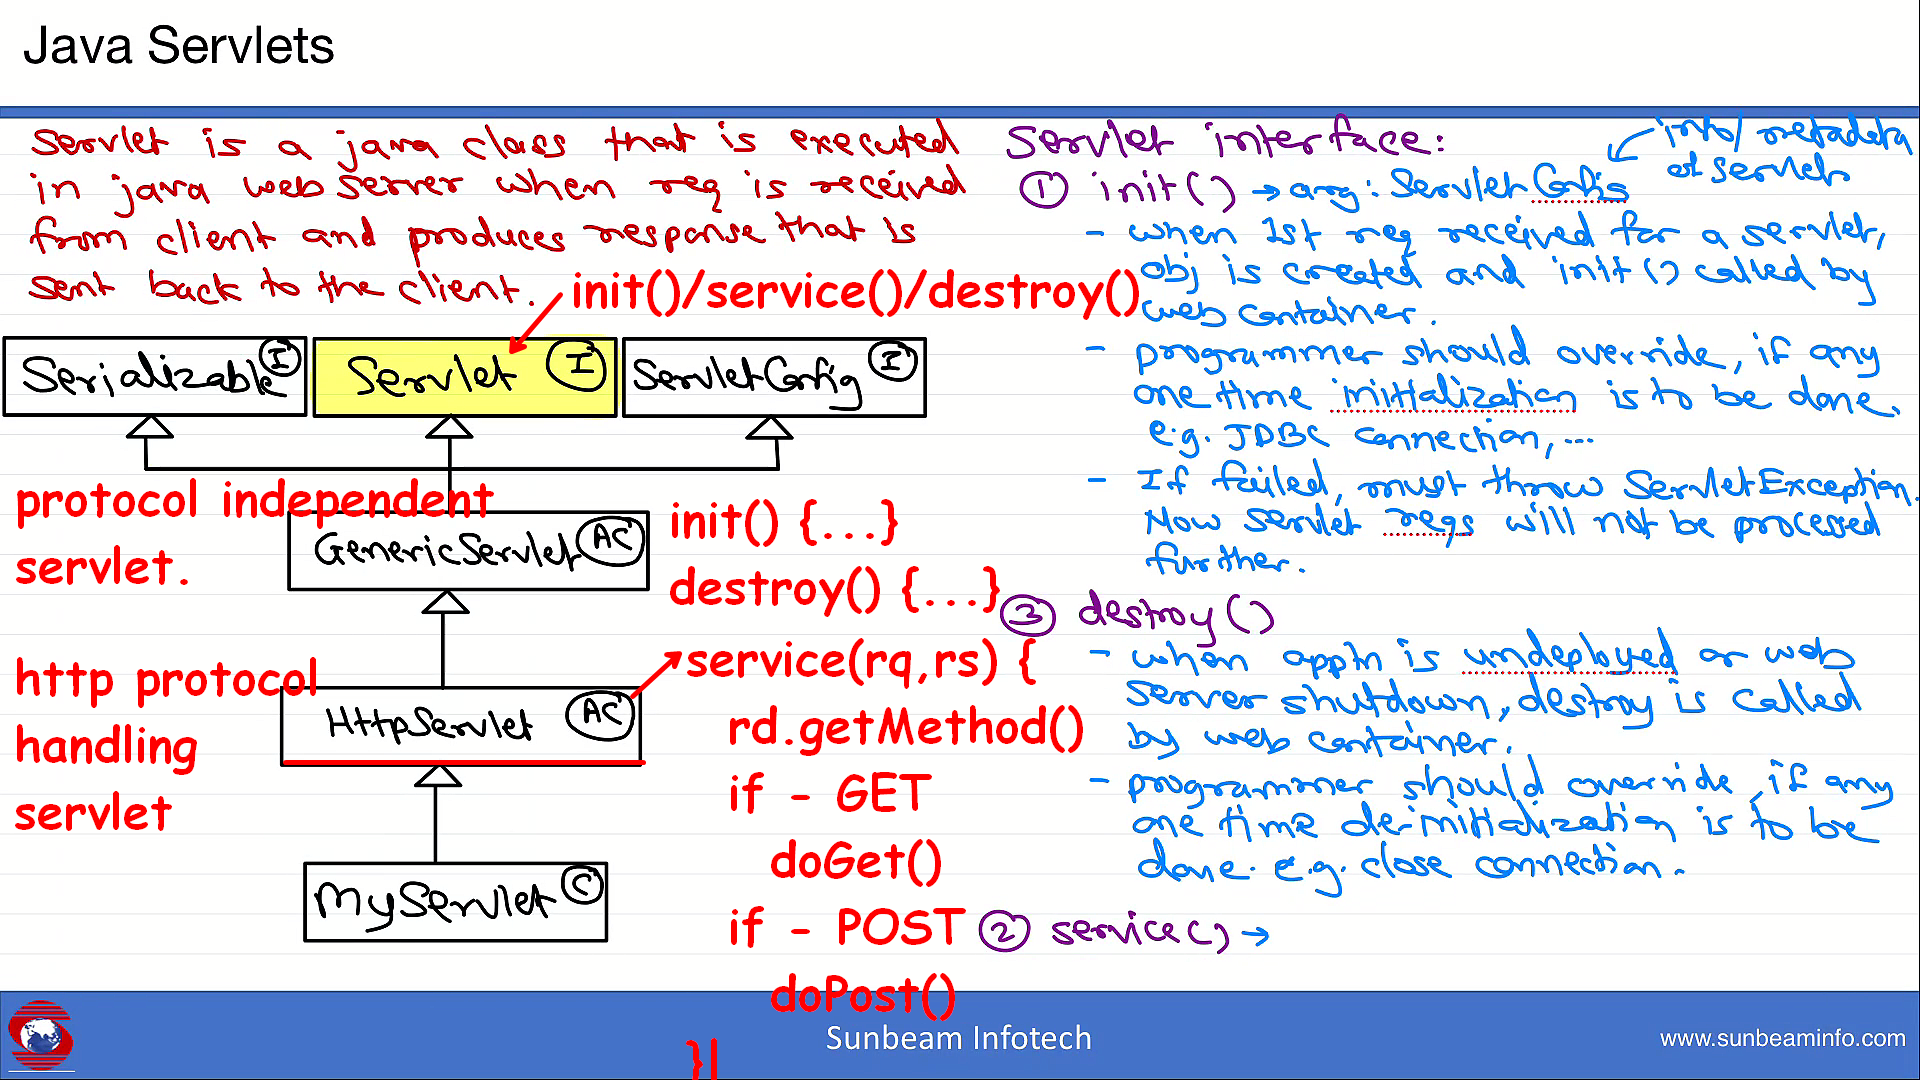 Java Servlets
Servlet is a java class that is executed
in java web server when req is received
from client and produces response that is
sent back to the client.
init()/service()/destroy()
Serializable I
Servlet I
ServletConfig I
protocol independent
servlet.
GenericServlet AC
init() {...}
destroy() {...}
http protocol
handling
servlet
HttpServlet AC
service(rq,rs) {
rd.getMethod()
if - GET
doGet()
if - POST
doPost()
}
MyServlet C
Servlet interface:
① init() → arg: ServletConfig
info/metadata
of servlet
- when 1st req received for a servlet,
obj is created and init() called by
web container.
- programmer should override, if any
one time initialization is to be done.
e.g. JDBC connection, ...
- If failed, must throw ServletException.
Now servlet reqs will not be processed
further.
③ destroy()
- when appln is undeployed or web
server shutdown, destroy is called
by web container.
- programmer should override, if any
one time de-initialization is to be
done. e.g. close connection.
② service() →
Sunbeam Infotech
www.sunbeaminfo.com